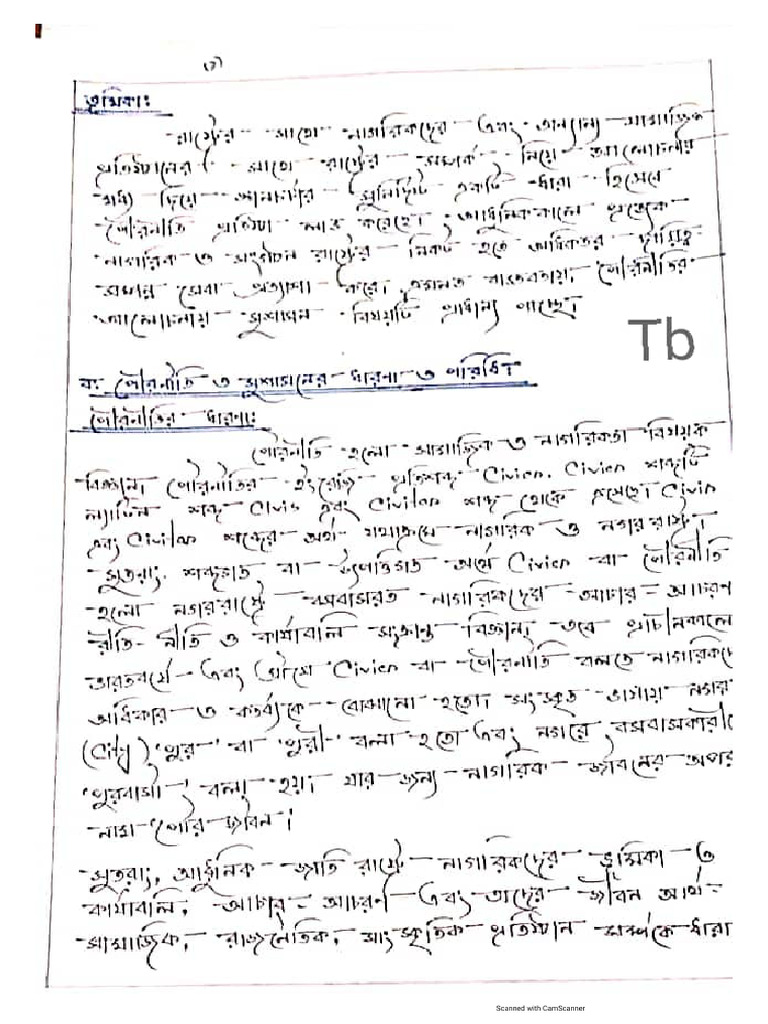 (১)
ভূমিকাঃ
রাষ্ট্রের সাথে নাগরিকদের এবং অন্যান্য সামাজিক
প্রতিষ্ঠানের সাথে রাষ্ট্রের সম্পর্ক নিয়ে আলোচনার
মধ্য দিয়ে জ্ঞানচর্চার সুনির্দিষ্ট একটি ধারা হিসেবে
পৌরনীতি প্রতিষ্ঠা লাভ করেছে। আধুনিককালে প্রত্যেক
নাগরিক ও সংগঠন রাষ্ট্রের নিকট হতে অধিকতর দায়িত্ব
সম্পন্ন সেবা প্রত্যাশা করে। বাস্তবতায় পৌরনীতির
আলোচনায় সুশাসন বিষয়টি প্রাধান্য পাচ্ছে।
Tb
কঃ পৌরনীতি ও সুশাসনের ধারনা ও পরিধি।
পৌরনীতির ধারণাঃ
পৌরনীতি হলো সামাজিক ও নাগরিকতা বিষয়ক
বিজ্ঞান। পৌরনীতির ইংরেজি প্রতিশব্দ Civics. Civics শব্দটি
ল্যাটিন শব্দ Civis এবং Civitas শব্দ থেকে এসেছে। Civis
এবং Civitas শব্দের অর্থ যথাক্রমে নাগরিক ও নগররাষ্ট্র।
সুতরাং, শব্দগত বা উৎপত্তিগত অর্থে Civics বা পৌরনীতি
হলো নগররাষ্ট্রে বসবাসরত নাগরিকদের আচার-আচরণ
রীতি-নীতি ও কার্যাবলি সংক্রান্ত বিজ্ঞান। তবে প্রাচীনকালে
ভারতবর্ষে এবং গ্রীসে Civics বা পৌরনীতি বলতে নাগরিকদে
অধিকার ও কর্তব্যকে বোঝানো হতো। সংস্কৃত ভাষায় নগর
(City) 'পুর' বা 'পুরী' বলা হতো এবং নগরে বসবাসকারী
'পুরবাসী' বলা হয়। যার জন্য নাগরিক জীবনের অপর
নাম 'পৌর জীবন'।
সুতরাং, আধুনিক জাতি রাষ্ট্রে নাগরিকদের ভূমিকা ও
কার্যাবলি, আচার-আচরণ এবং তাদের জীবন আর্থ-
সামাজিক, রাজনৈতিক, সাংস্কৃতিক প্রতিষ্ঠান সম্পর্কে ধারা
Scanned with CamScanner